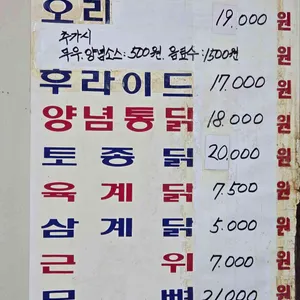 오리 19.000원
추가시
무우.양념소스:500원. 음료수:1500원
후라이드 17.000원
양념통닭 18.000원
토종닭 20.000원
육계닭 7.500원
삼계닭 5.000원
근위 7.000원
2/.000원